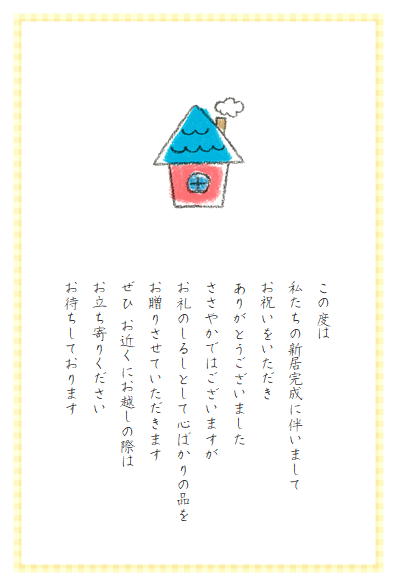 この度は
私たちの新居完成に伴いまして
お祝いをいただき
ありがとうございました
ささやかではございますが
お礼のしるしとして心ばかりの品を
お贈りさせていただきます
ぜひ お近くにお越しの際は
お立ち寄りください
お待ちしております